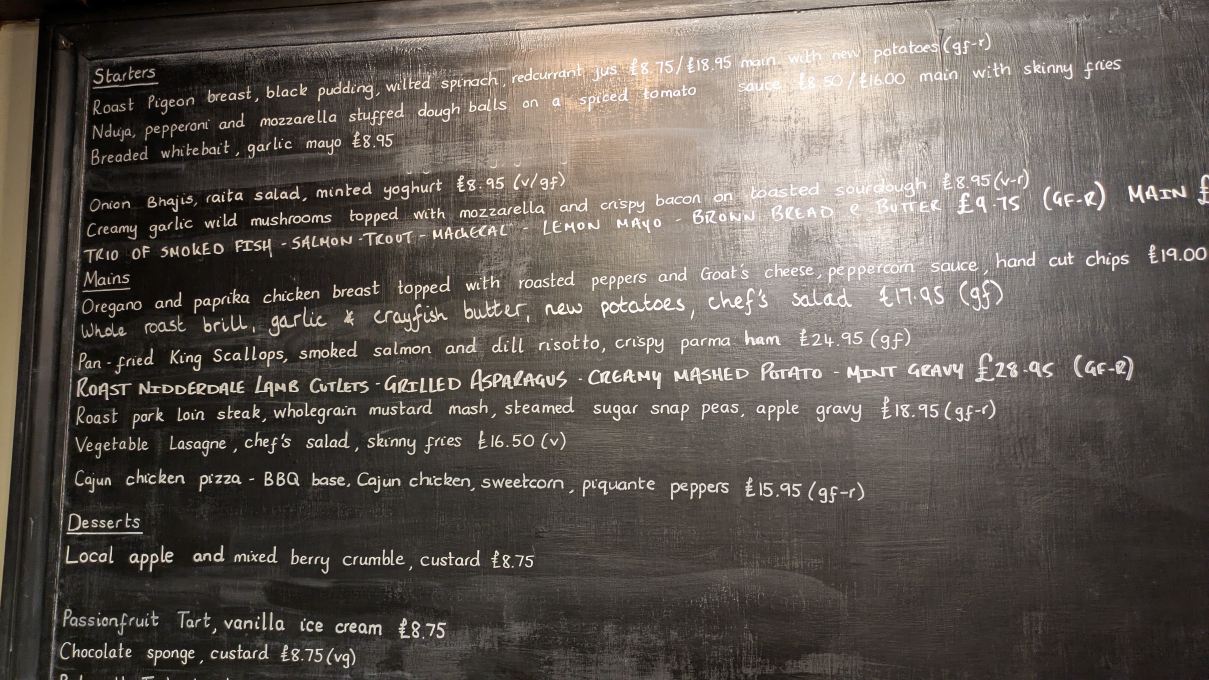 Starters
Roast Pigeon breast, black pudding, wilted spinach, redcurrant jus £8.75/£18.95 main with new potatoes (gf-r)
Nduja, pepperoni and mozzarella stuffed dough balls on a spiced tomato sauce £8.50/£16.00 main with skinny fries
Breaded whitebait, garlic mayo £8.95
Onion Bhajis, raita salad, minted yoghurt £8.95 (v/gf)
Creamy garlic wild mushrooms topped with mozzarella and crispy bacon on toasted sourdough £8.95 (v-r)
TRIO OF SMOKED FISH - SALMON - TROUT - MACKERAL - LEMON MAYO - BROWN BREAD & BUTTER £9.75 (GF-R) MAIN £
Mains
Oregano and paprika chicken breast topped with roasted peppers and Goat's cheese, peppercorn sauce, hand cut chips £19.00
Whole roast brill, garlic & crayfish butter, new potatoes, chef's salad £17.95 (gf)
Pan-fried King Scallops, smoked salmon and dill risotto, crispy parma ham £24.95 (gf)
ROAST NIDDERDALE LAMB CUTLETS - GRILLED ASPARAGUS - CREAMY MASHED POTATO - MINT GRAVY £28.95 (GF-R)
Roast pork loin steak, wholegrain mustard mash, steamed sugar snap peas, apple gravy £18.95 (gf-r)
Vegetable Lasagne, chef's salad, skinny fries £16.50 (v)
Cajun chicken pizza - BBQ base, Cajun chicken, sweetcorn, piquante peppers £15.95 (gf-r)
Desserts
Local apple and mixed berry crumble, custard £8.75
Passionfruit Tart, vanilla ice cream £8.75
Chocolate sponge, custard £8.75 (vg)